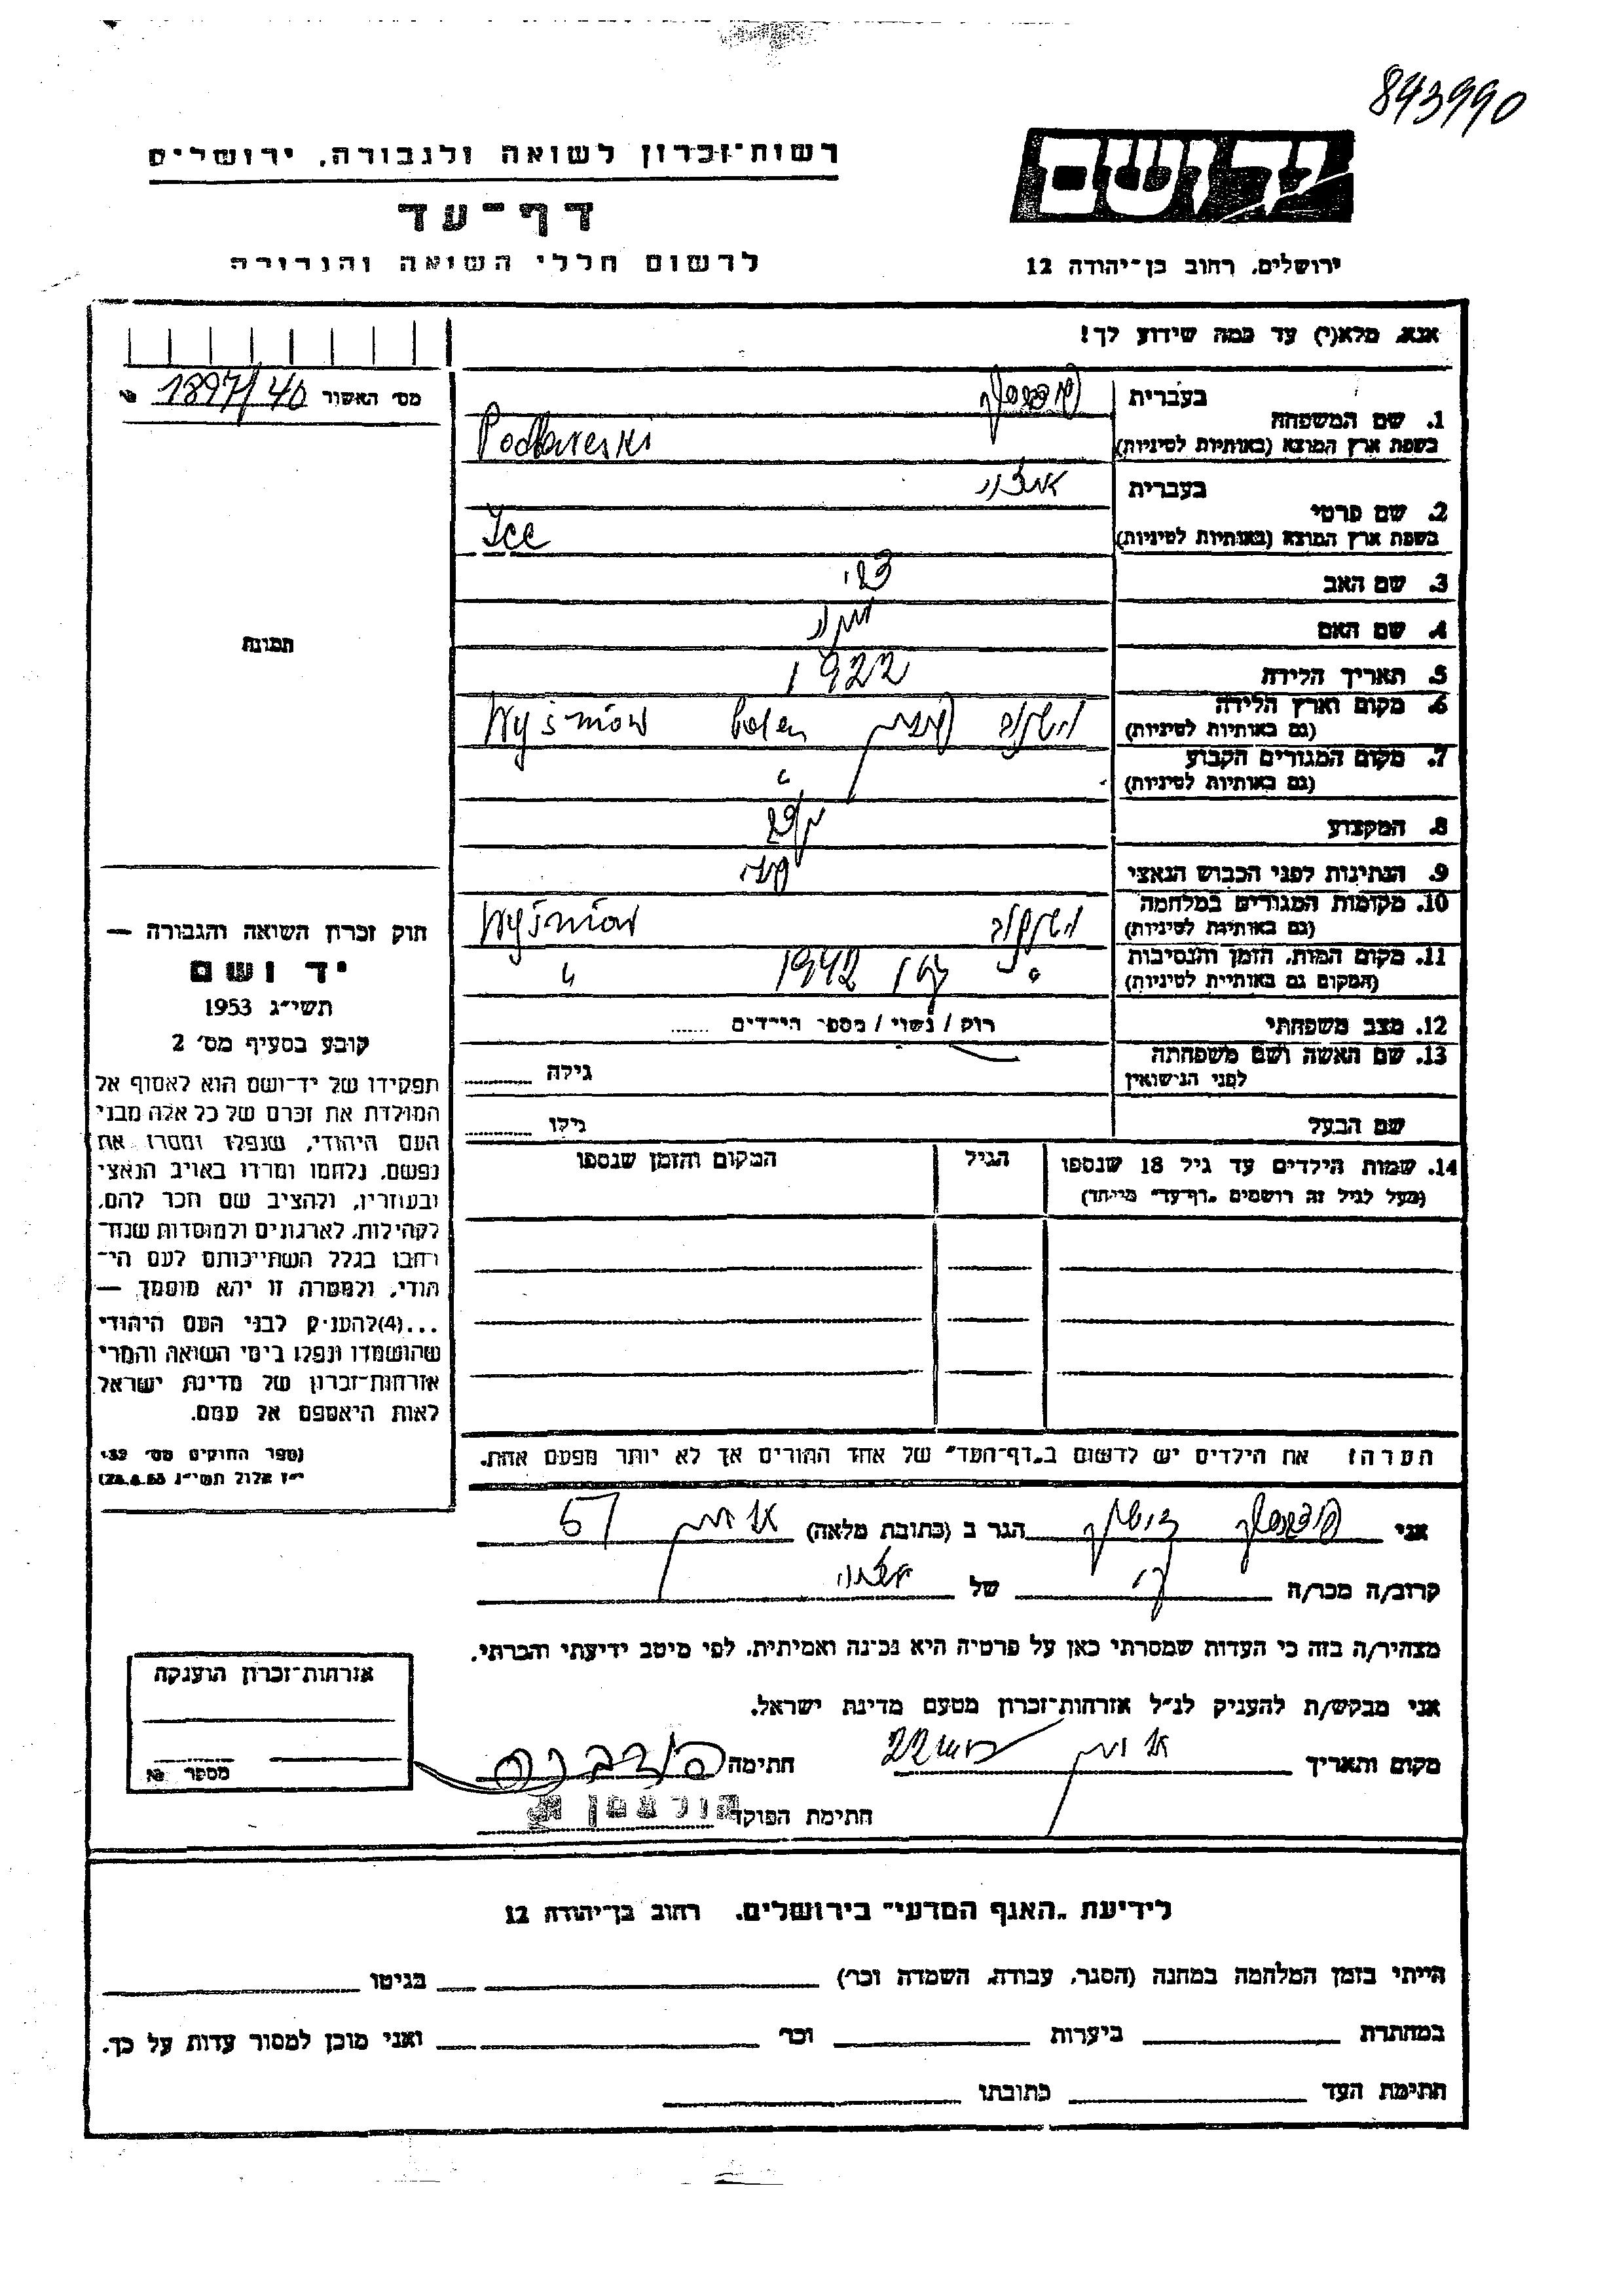 843990
רשות־זכרון לשואה ולגבורה, ירושלים
יד ושם
דף־עד
לרשום חללי השואה והגבורה
ירושלים, רחוב בן־יהודה 12
אנא, מלא(י) עד כמה שידוע לך!
מס׳ האשור 1897/40 №
בעברית
1. שם המשפחה
בשפת ארץ המוצא (באותיות לטיניות) Podlaveski
בעברית
2. שם פרטי
בשפת ארץ המוצא (באותיות לטיניות) Ice
3. שם האב צבי
4. שם האם
5. תאריך הלידה 1922
6. מקום וארץ הלידה Wyśmiów Polen
(גם באותיות לטיניות)
7. מקום המגורים הקבוע "
(גם באותיות לטיניות)
8. המקצוע
9. הנתינות לפני הכבוש הנאצי
10. מקומות המגורים במלחמה Wyśmiów
(גם באותיות לטיניות)
11. מקום המות, הזמן והנסיבות " 1942 "
(המקום גם באותיות לטיניות)
12. מצב משפחתי רווק / נשוי / מספר הילדים
13. שם האשה ושם משפחתה גילה
לפני הנישואין
שם הבעל גילו
14. שמות הילדים עד גיל 18 שנספו הגיל המקום והזמן שנספו
(מעל לגיל זה רושמים „דף־עד" מיוחד)
הערה: את הילדים יש לרשום ב„דף־העד" של אחד ההורים אך לא יותר מפעם אחת.
תמונה
חוק זכרון השואה והגבורה —
יד ושם
תשי״ג 1953
קובע בסעיף מס׳ 2
תפקידו של יד־ושם הוא לאסוף אל
המולדת את זכרם של כל אלה מבני
העם היהודי, שנפלו ומסרו את
נפשם, נלחמו ומרדו באויב הנאצי
ובעוזריו, ולהציב שם וזכר להם,
לקהילות, לארגונים ולמוסדות שנח־
רבו בגלל השתייכותם לעם הי־
הודי, ולמטרה זו יהא מוסמך —
...(4)להעניק לבני העם היהודי
שהושמדו ונפלו בימי השואה והמרי
אזרחות־זכרון של מדינת ישראל
לאות היאספם אל עמם.
(ספר החוקים מס׳ 132
י״ז אלול תשי״ג 28.8.53)
אני הגר ב (כתובת מלאה) 57
קרוב/ה מכר/ה של
מצהיר/ה בזה כי העדות שמסרתי כאן על פרטיה היא נכונה ואמיתית, לפי מיטב ידיעתי והכרתי.
אני מבקש/ת להעניק לנ״ל אזרחות־זכרון מטעם מדינת ישראל.
מקום ותאריך חתימה
חתימת הפוקד
אזרחות־זכרון הוענקה
מספר №
לידיעת „האגף המדעי" בירושלים, רחוב בן־יהודה 12
הייתי בזמן המלחמה במחנה (הסגר, עבודה, השמדה וכו׳) בגיטו
במחתרת ביערות וכו׳ ואני מוכן למסור עדות על כך.
חתימת העד כתובתו